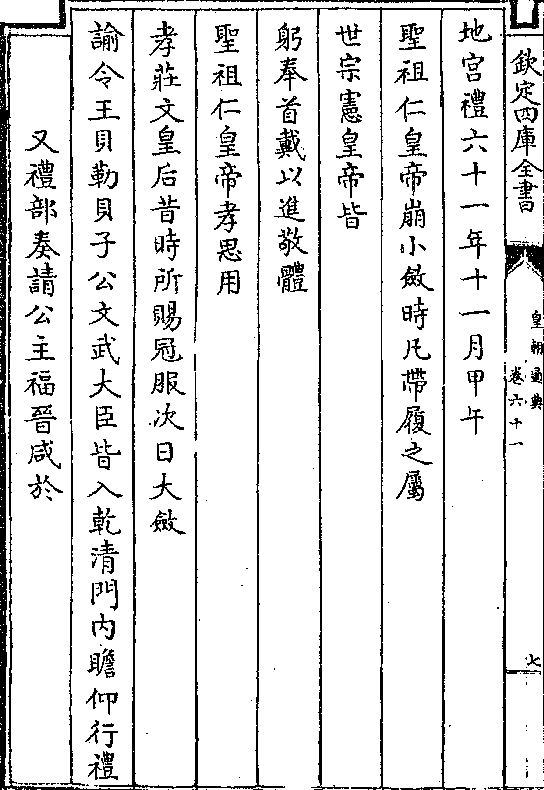 欽定四庫全書
皇朝通典
卷六十一
七
地宫禮六十一年十一月甲午
聖祖仁皇帝崩小斂時凡帶履之屬
世宗憲皇帝皆
躬奉首戴以進敬體
聖祖仁皇帝孝思用
孝莊文皇后昔時所賜冠服次日大斂
諭令王貝勒貝子公文武大臣皆入乾清門内瞻仰行禮
又禮部奏請公主福晉咸於